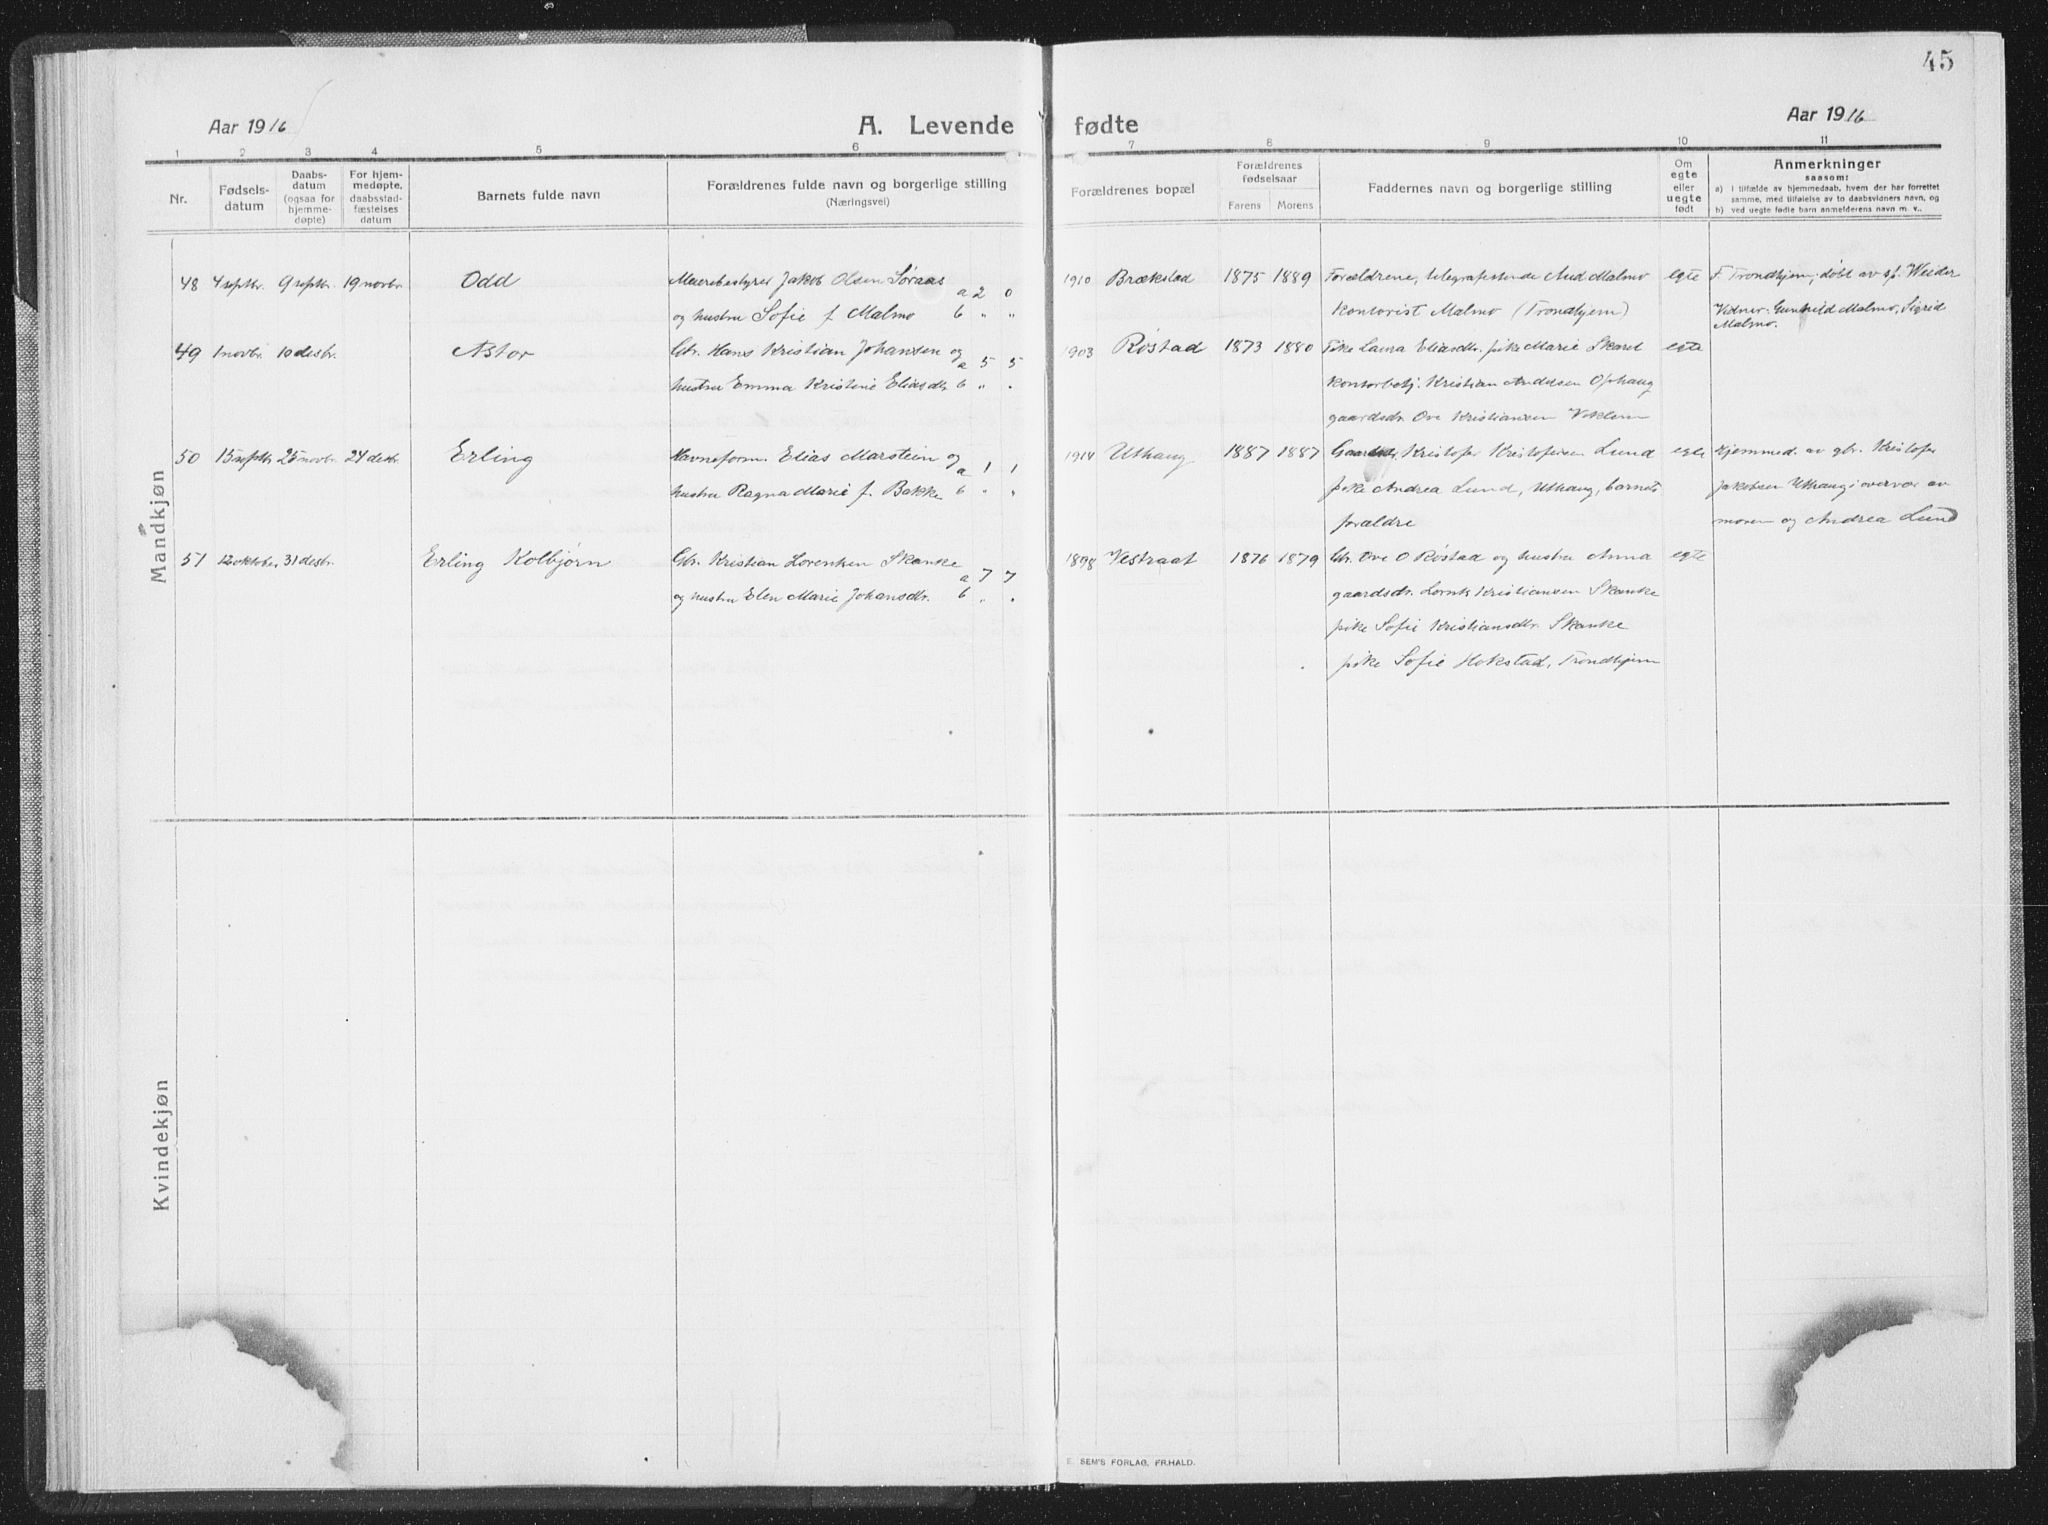 45
Aar 1916
A. Levende fødte
Aar 1916
1 2 3 4 5 6 7 8 9 10 11
Nr.
Fødsels-
datum
Daabs-
datum
(ogsaa for
hjemme-
døpte)
For hjem-
medøpte,
daabsstad-
fæstelses
datum
Barnets fulde navn
Forældrenes fulde navn og borgerlige stilling
(Næringsvei)
Forældrenes bopæl
Forældrenes
fødselsaar
Farens Morens
Faddernes navn og borgerlige stilling
Om
egte
eller
uegte
født
Anmerkninger
saasom:
a) I tilfælde av hjemmedaab, hvem der har forrettet
samme, med tilføielse av to daabsvidners navn, og
b) ved uegte fødte barn anmelderens navn m. v..
Mandkjøn
48 4 septbr. 9 septbr. 19 novbr. Odd Meieribestyrer Jakob Olsen Søraas a 2 0 1910 Brækstad 1875 1889 Forældrene, telegrafistinde Aud Malmo egte F. Trondhjem; døbt av sp. Weider
og hustru Sofie f. Malmo b " " kontorist Malmo (Trondhjem) Vidner: Gunhild Malmo, Sigrid
Malmo.
49 1 novbr. 10 desbr. Astor Gbr. Hans Kristian Johansen og a 5 5 1903 Røstad 1873 1880 Pike Laura Eliasdtr. pike Marie Skaret egte
hustru Emma Kristine Eliasdtr. b " . kontorbetj. Kristian Andersen Ophaug
gaardsdr. Ove Kristiansen
50 15 septbr. 25 novbr. 24 desbr. Erling Havneform. Elias Marstein og a 1 1 1914 Uthaug 1887 1887 Kristofer Kristofersen Lund egte Hjemmed. av gbr. Kristofer
hustru Ragna Marie f. Bakke b " " pike Andrea Lund, Uthaug, barnets Jakobsen Uthaug i overvær av
forældre moren og Andrea Lund
51 12 oktober 31 desbr. Erling Kolbjørn Gbr. Kristian Lorentsen Skanke a 7 7 1898 Vestraat 1876 1879 Gbr. Ove O Røstad og hustru Anna egte
og hustru Elen Marie Johansdtr. b " . gaardsdr. Lornts Kristiansen Skanke
pike Sofie Kristiansdtr. Skanke
pike Sofie Hokstad, Trondhjem
Kvindekjøn
E. SEM'S FORLAG, FR.HALD.